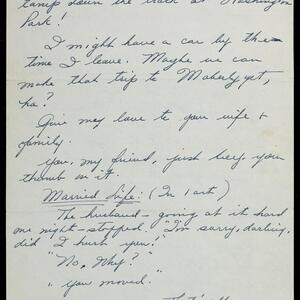 camp down the track at Washington
Park!
I might have a car by the
time I leave. Maybe we can
make that trip to Moberly yet,
ha?
Give my love to your wife &
family.
You, my friend, just keep your
thumb in it.
Married Life: (In 1 act)
The husband - going at it hard
one night - stopped. "I'm sorry, darling,
did I hurt you!"
"No, Why?"
"You moved."